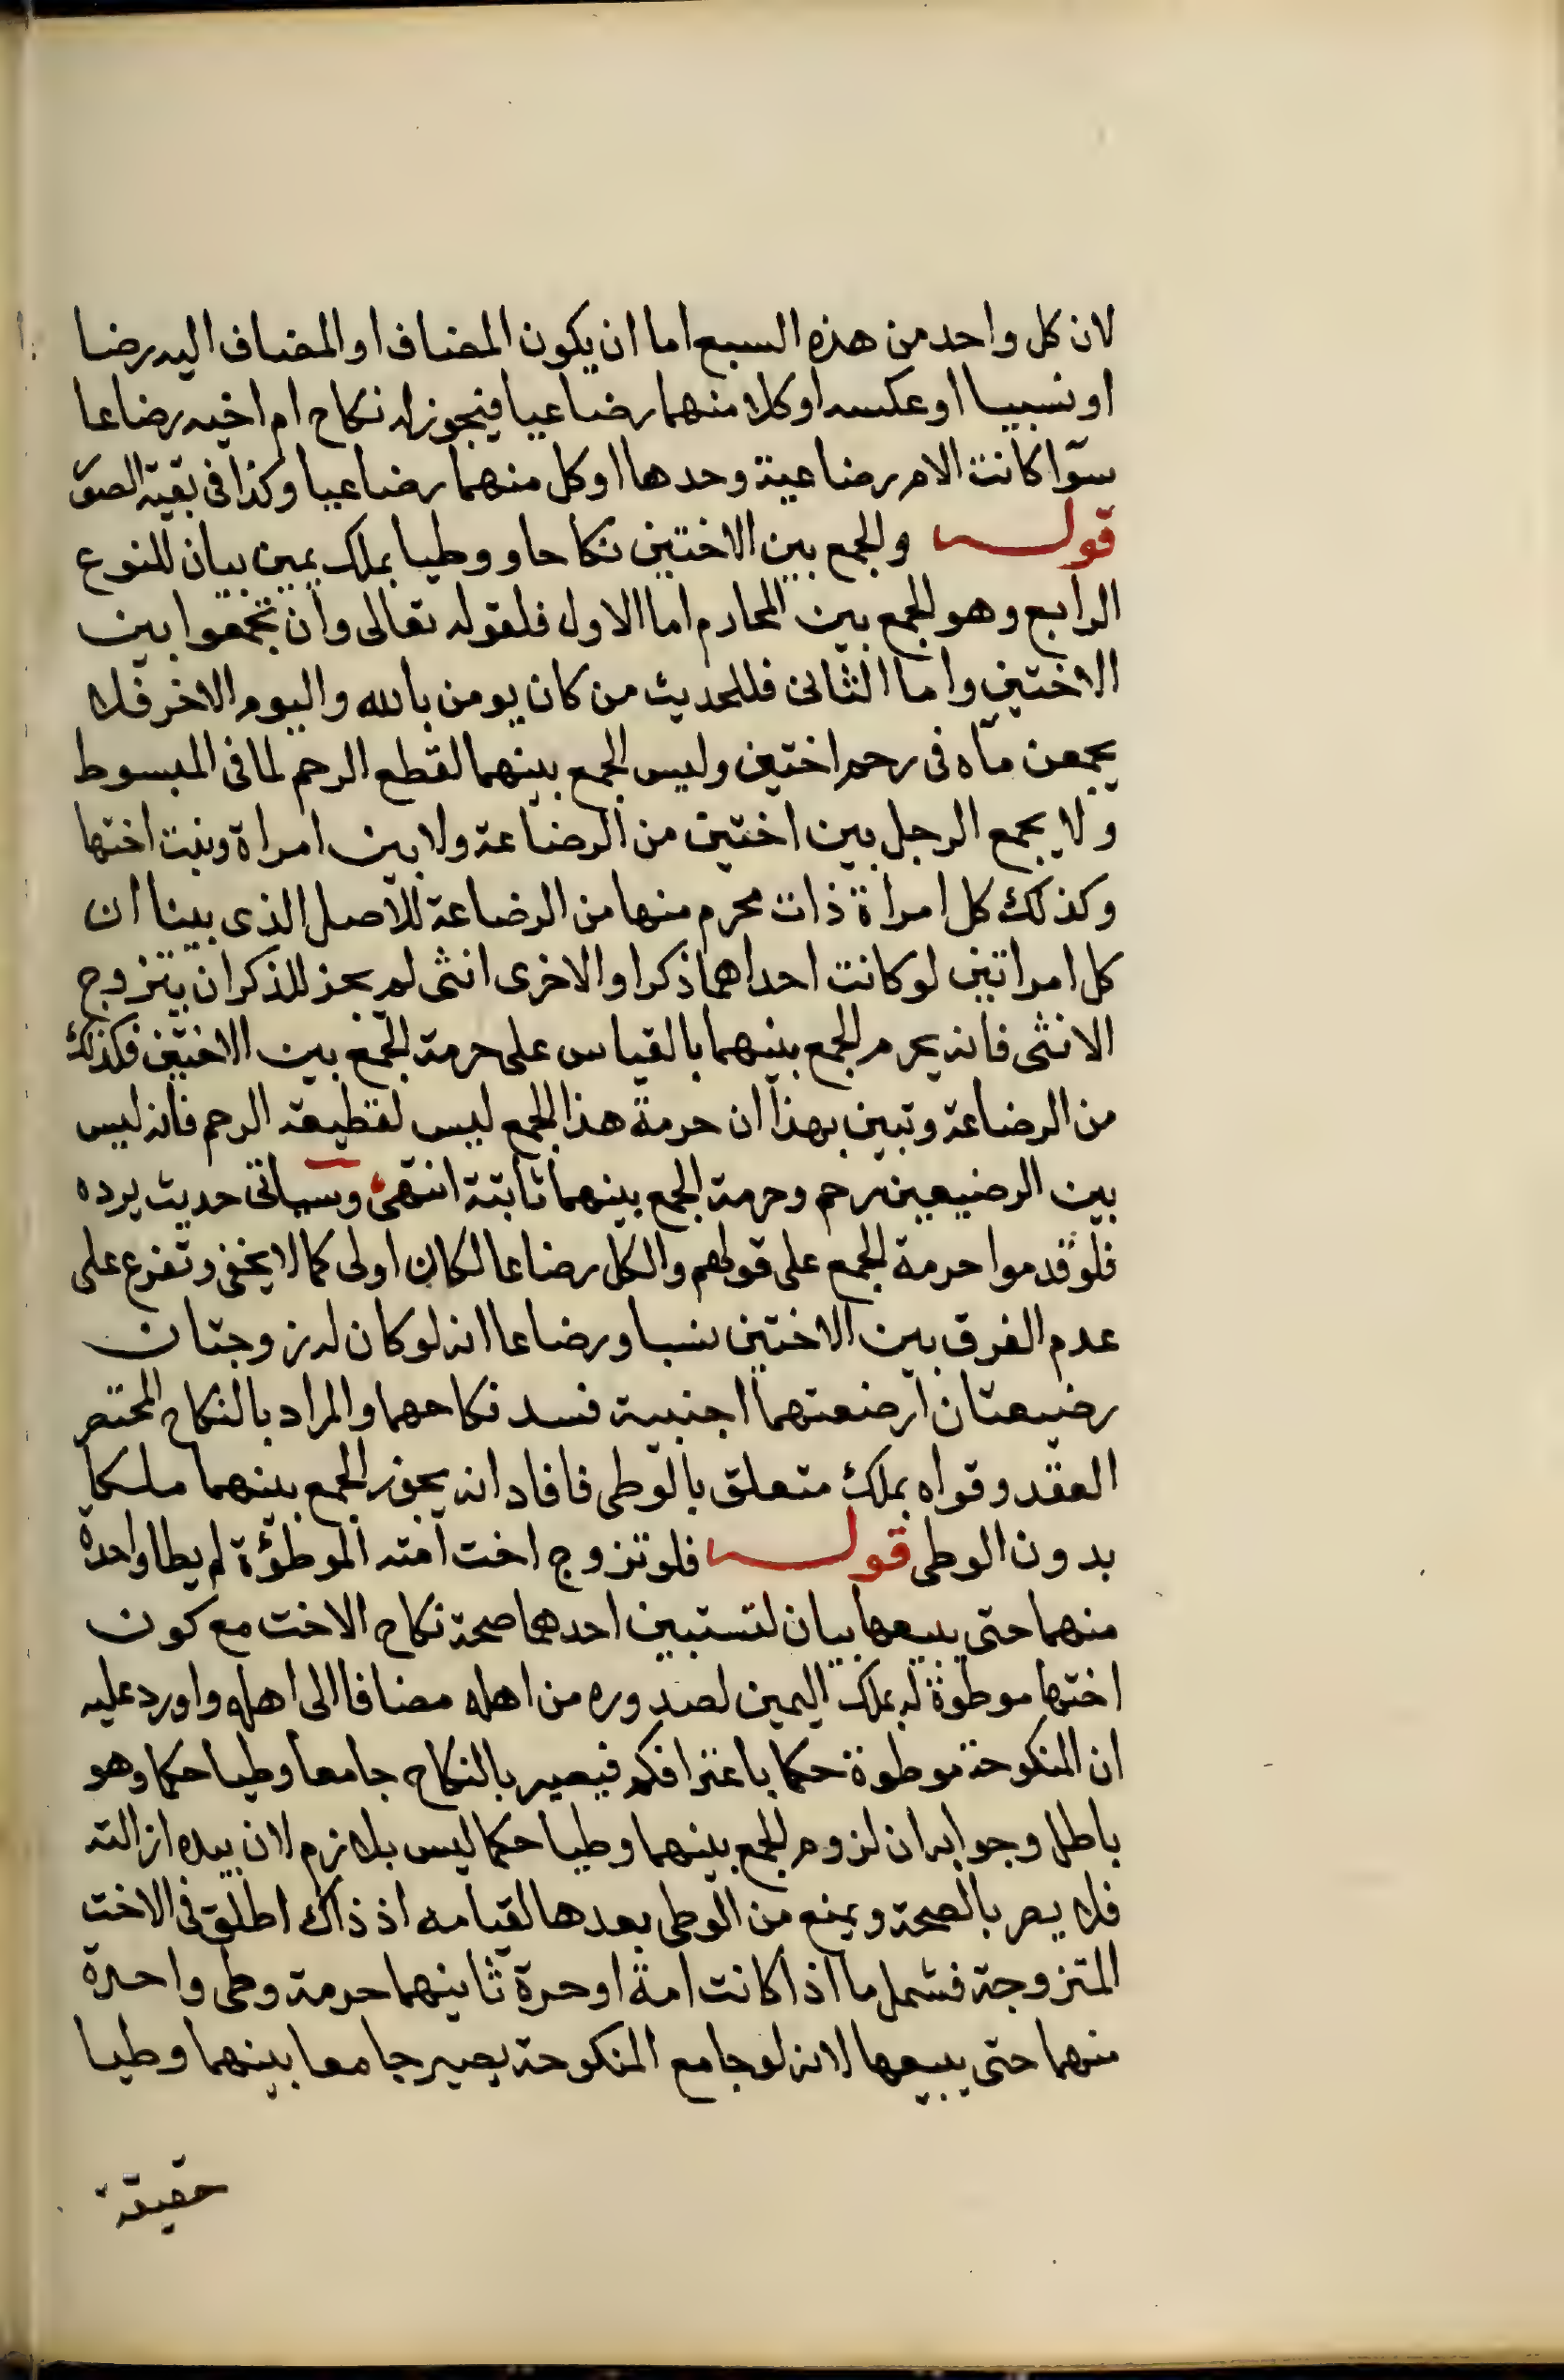 لان كل واحد من هذه السبع اما ان يكون المضاف او المضاف اليه رضا
او نسبيا او عكسه او كلا منهما رضاعيا فيجوز له نكاح ام اخيه رضاعا
سوآ كانت الام رضاعية وحدها او كل منهما رضاعيا وكذا في بقية الصور
قوله والجمع بين الاختين نكاحا ووطيا بملك يمين بيان للنوع
الرابع وهو الجمع بين المحارم اما الاول فلقوله تعالى وان تجمعوا بين
الاختين واما الثانى فللحديث من كان يومن بالله واليوم الاخر فلا
يجمعن مآه فى رحم اختين وليس الجمع بينهما لقطع الرحم لما فى المبسوط
ولا يجمع الرجل بين اختين من الرضاعة ولا بين امراة وبنت اختها
وكذلك كل امراة ذات محرم منها من الرضاعة للاصل الذى بينا ان
كل امراتين لو كانت احداهما ذكرا والاخرى انثى لم يجز للذكر ان يتزوج
الانثى فانه يحرم الجمع بينهما بالقياس على حرمة الجمع بين الاختين فكذلك
من الرضاعة وتبين بهذا ان حرمة هذا الجمع ليس لقطيعة الرحم فانه ليس
بين الرضيعين رحم وحرمة الجمع بينهما ثابتة انتهى وسياتى حديث يرده
فلو قدموا حرمة الجمع على قولهم والكل رضاعا لكان اولى كما لا يخفى وتفرع على
عدم الفرق بين الاختين نسبا ورضاعا انه لو كان له زوجتان
رضيعتان ارضعتهما اجنبية فسد نكاحهما والمراد بالنكاح المختصر
العقد وقوله بملك متعلق بالوطى فافاد انه يجوز الجمع بينهما ملكا
بدون الوطى قوله فلو تزوج اخت امته الموطؤة لم يطا واحدة
منهما حتى يبيعها بيان لتستبين احدهما صحة نكاح الاخت مع كون
اختها موطوة له بملك اليمين لصدوره من اهله مضافا الى اهله واورد عليه
ان المنكوحة موطوة حكما باعترافكم فيصير بالنكاح جامعا وطيا حكما وهو
باطل وجوابه ان لزوم الجمع بينهما وطيا حكما ليس بلازم لان بيده ازالته
فلا يضر بالصحة ويمنع من الوطى بعدها لقيامه اذ ذاك اطلق فى الاخت
المتزوجة فشمل ما اذا كانت امة او حرة ثانيهما حرمة وطى واحدة
منهما حتى يبيعها لانه لو جامع المنكوحة يصير جامعا بينهما وطيا
حقيقة